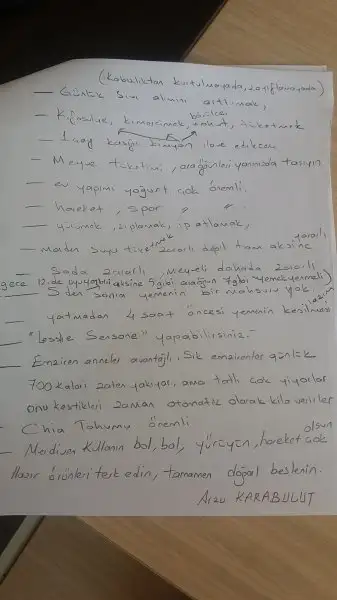 (Kabızlıktan kurtulmayada, zayıflamayada)
— Günlük sıvı alımı arttırmak,
börülce
— K.fasulye, k.mercimek, nohut, tüketmek
— 1 çay kaşığı kimyon ilave edilecek
— Meyve tüketimi, ara öğünleri yanınızda taşıyın
— ev yapımı yoğurt çok önemli.
— hareket, spor " "
— yürümek, zıplamak, ip atlamak,
— maden suyu tüketmek zararlı değil tam aksine yararlı
— Sade zararlı, Meyveli dahada zararlı
gece 12 de uyuyabilir aksine 5 gibi ara öğün 7 gibi yemek yenmeli)
— 5 den sonra yemenin bir mahsuru yok
— yatmadan 4 saat öncesi yemenin kesilmesi lazım
— "Lesshe Sensone" yapabilirsiniz.
— Emziren anneler avantajlı, Sık emzirenler günlük
700 kalori zaten yakıyor, ama tatlı çok yiyorlar
onu kestikleri zaman otomatik olarak kilo verirler
— Chia Tohumu önemli
— Merdiven Kullanın bol, bol, yürüyün, hareket çok olsun
Hazır ürünleri terk edin, tamamen doğal beslenin.
Arzu KARABULUT